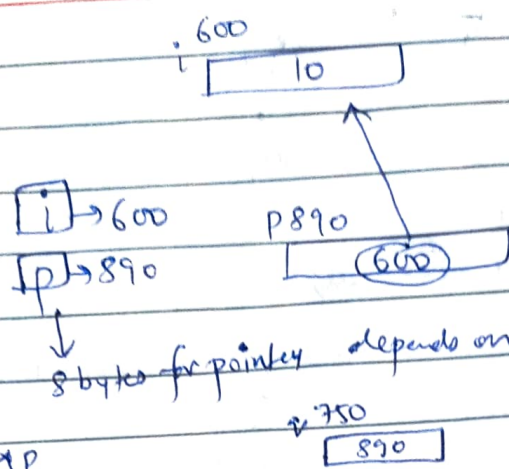 i 600
10
i → 600
p 890
p → 890
600
8 bytes for pointer depends on
750
890
*p